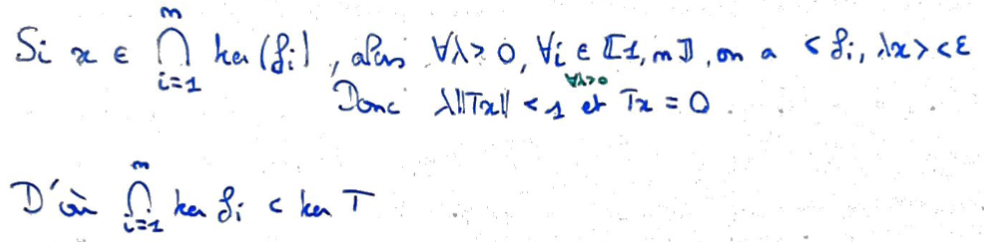 Si x ∈ ⋂_{i=1}^{n} ker(fi), alors ∀λ>0, ∀i ∈ ⟦1,n⟧, on a <fi, λx> < ε
∀λ>0
Donc λ||Tx|| < 1 et Tx = 0.
D'où ⋂_{i=1}^{n} ker fi ⊂ ker T